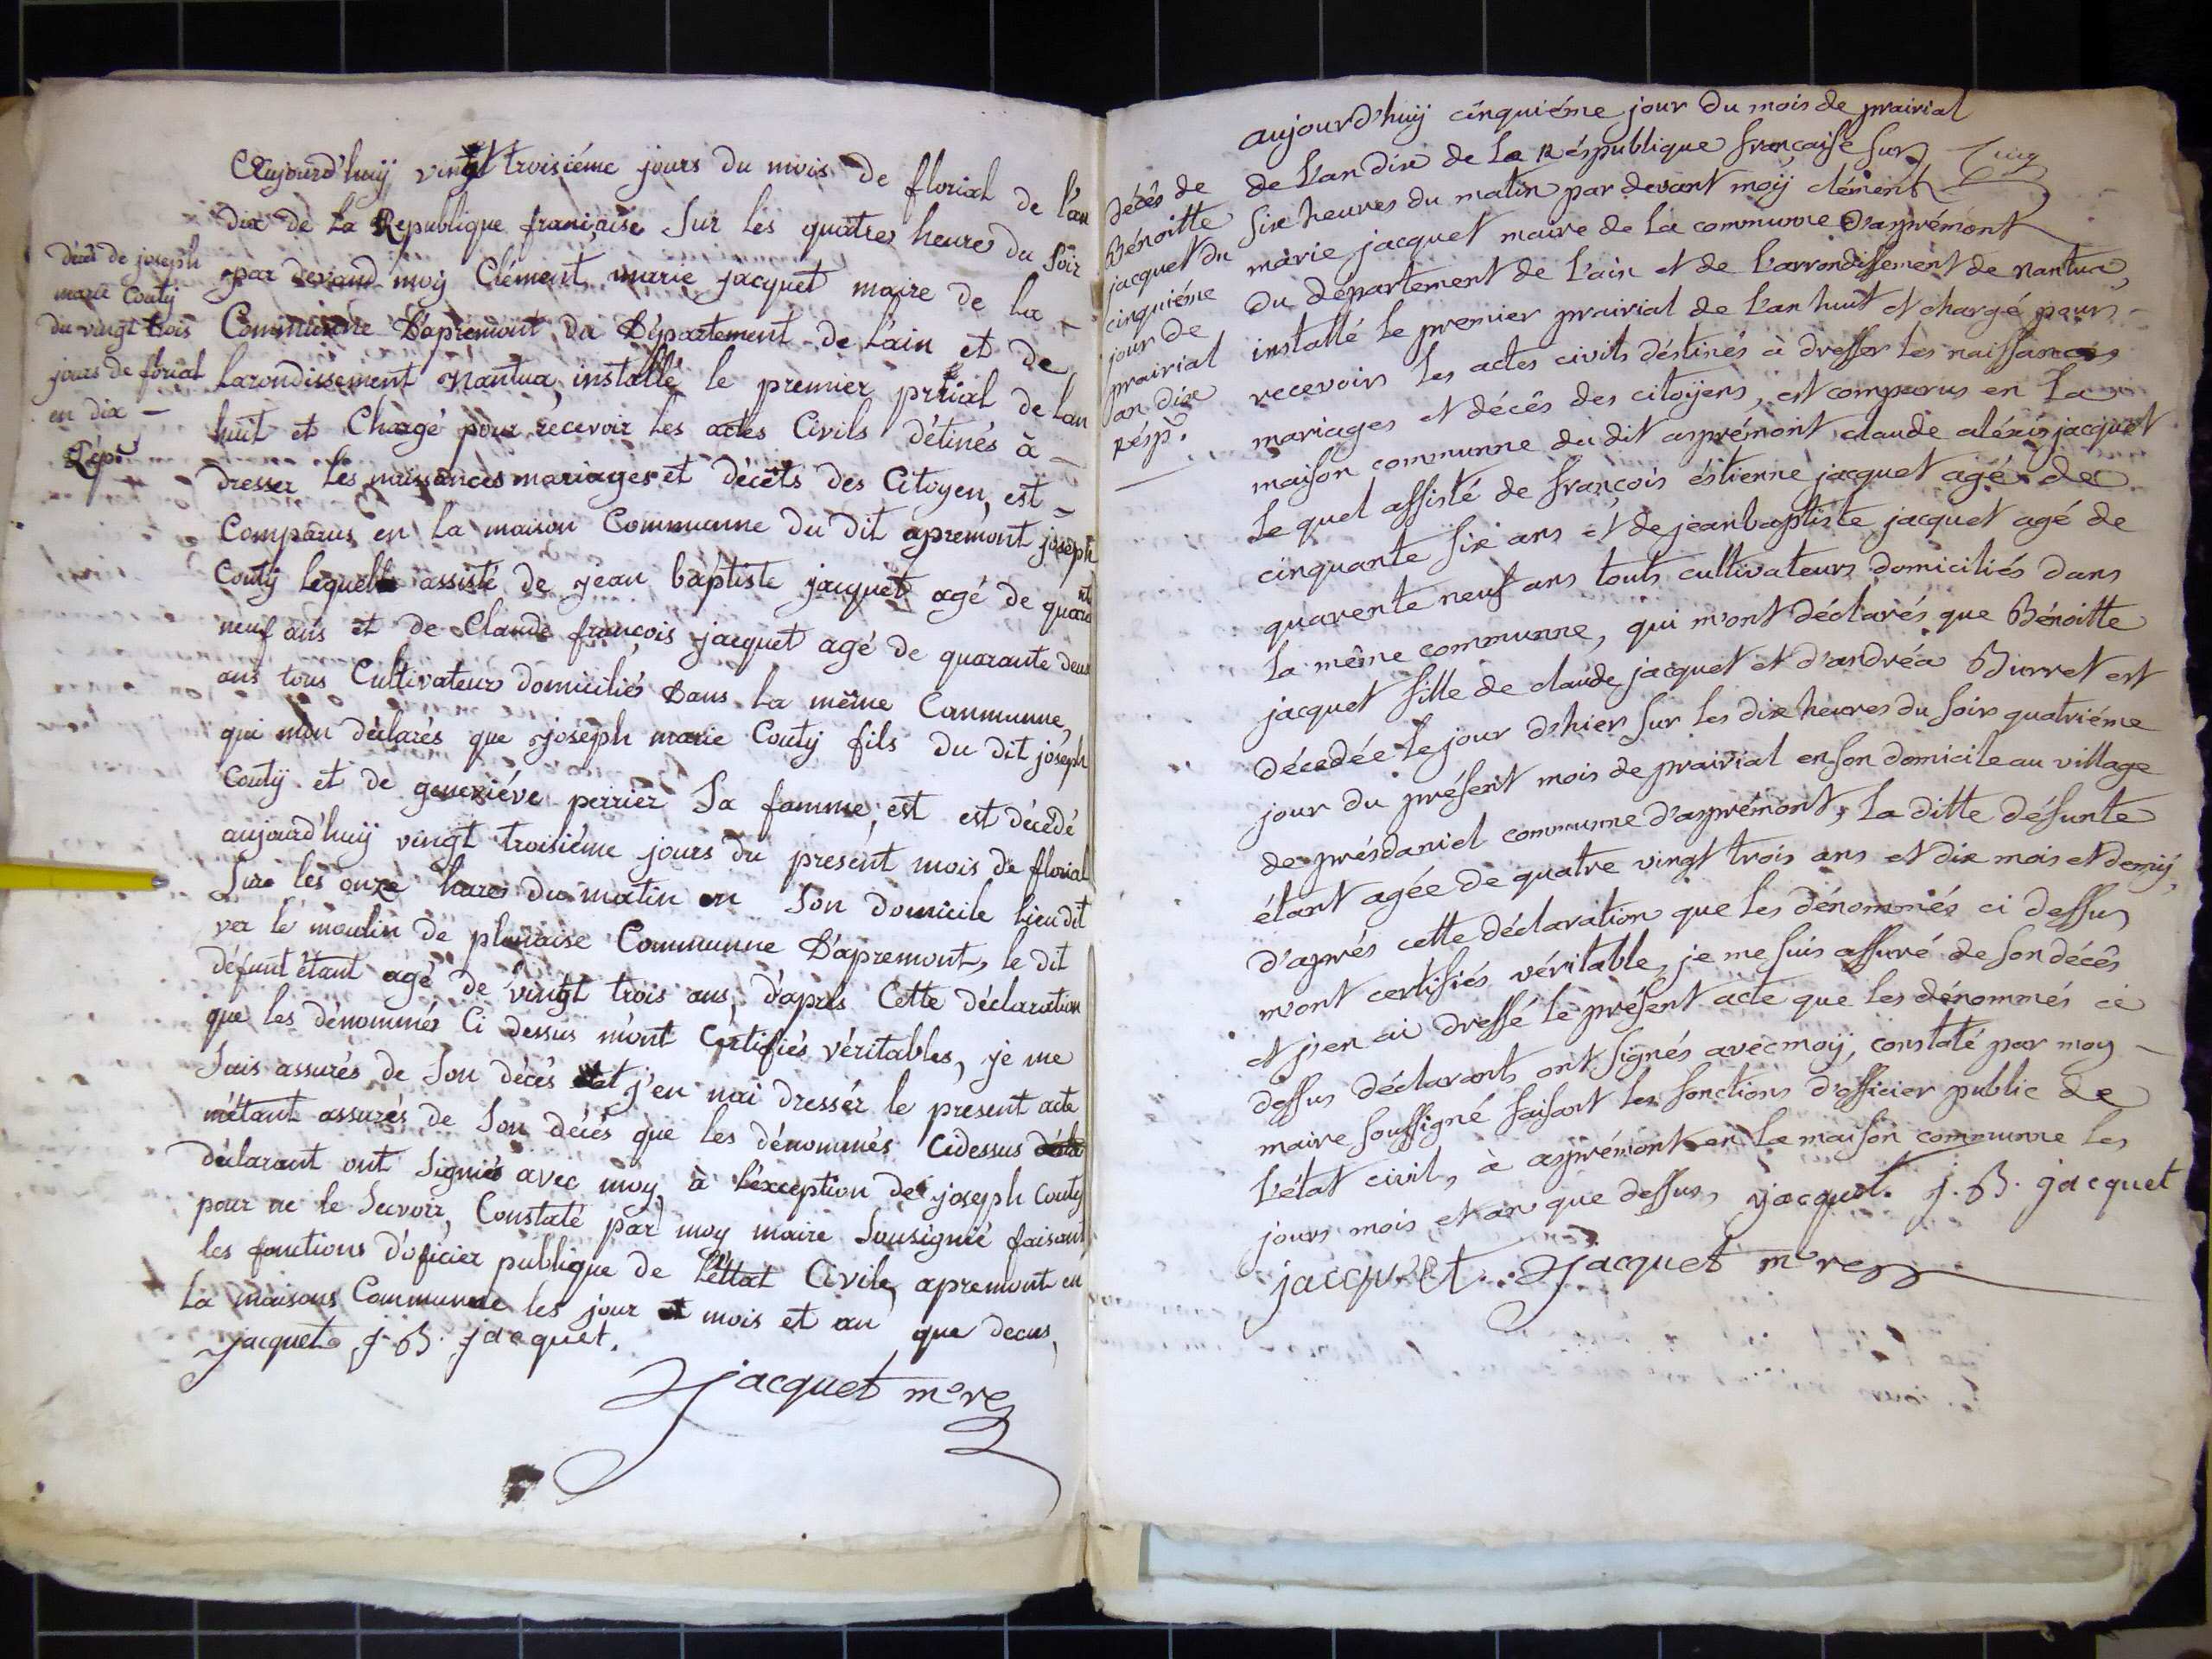 Aujourd'huÿ vingt troisiéme jours du mois de florial de l'an
dix de la Republique française sur les quatres heures du soir
par devand moÿ Clément marie jacquet maire de la
Communne D'apremont du Département de l'ain et de
larondissement Nantua, installé le premier prrial de lan
huit et Chargé pour récevoir les actes Civils détinés à
dresser les naissances mariages et décèts des Citoyen, est
Comparus en la maison Communne du dit apremont joseph
Coutÿ lequelle assisté de jean baptiste jacquet agé de quarante
neuf ans et de Claude françois jacquet agé de quarante deux
ans tous Cultivateurs domiciliés dans la même Communne,
qui mon déclarés que joséph marie Coutÿ fils du dit joseph
Coutÿ et de geneviéve perrier Sa famme, est est décédé
aujourd'huÿ vingt troisiéme jours du present mois de florial
Sure les onze hures du matin en Son domicile lieu dit
ver le moulin de planaise Communne D'apremont, le dit
défunt étant agé de vingt trois ans, d'aprés Cette déclaration
que les dénommés Ci dessus m'ont Cértifiés véritables, je me
Suis assurés de Son décés et j'en nai dressér le présent acte
m'étant assurés de Son décés que les dénommés Cidessus
déclarant ont Signiés avec moy, à l'éxception de joseph Coutÿ
pour ne le Scavoir, Constaté par moy maire Sousignié faisant
les fonctions d'oficier publique de l'éttat Civile, apremont en
la maisons Communne les jour et mois et an que decus,
jacquet J. B. jacquet.
jacquet mere
décés de joseph
marie Coutÿ
du vingt trois
jours de florial
en dix —
Rép.
aujourd'huÿ cinquiéme jour du mois de prairial
de L'an dix de La Républlique française sur
six heures du matin par devant moÿ clément
marie jacquet maire de La communne d'asprémont
du département de L'ain et de L'arrondissement de nantua,
installé le premier prairial de L'an huit et chargé pour
recevoir les actes civils déstinés à dresser les naissances
mariages et décês des citoÿens, est comparus en La
maison communne du dit asprémont claude aléxis jacquet
Le quel assisté de françois éstienne jacquet agé de
cinquante six ans et de jeanbaptiste jacquet agé de
quarente neuf ans touts cultivateurs domiciliés dans
La même communne, qui m'ont déclarés que Bénoitte
jacquet fille de claude jacquet et d'andréa Burret est
décedée le jour d'hier sur les dix heures du soir quatriéme
jour du présent mois de prairial en son domicile au village
de présdaniel communne d'asprémont, La ditte défunte
étant agée de quatre vingt trois ans et dix mois et demiÿ,
d'aprés cette déclaration que les dénommés ci dessus
m'ont certifiés véritable, je me suis assuré de son décês
et j'en ai dressé le présent acte que les dénommés ci
dessus déclarants ont signés avec moÿ, constaté par moy
maire soussigné faisant les fonctions d'officier public de
L'état civil, à asprémont en La maison communne les
jours mois et an que dessus, jacquet. J. B. jacquet
jacquet. jacquet mere
décês de
Bénoitte
jacquet du
cinquiéme
jour de
prairial
an dix
résp.